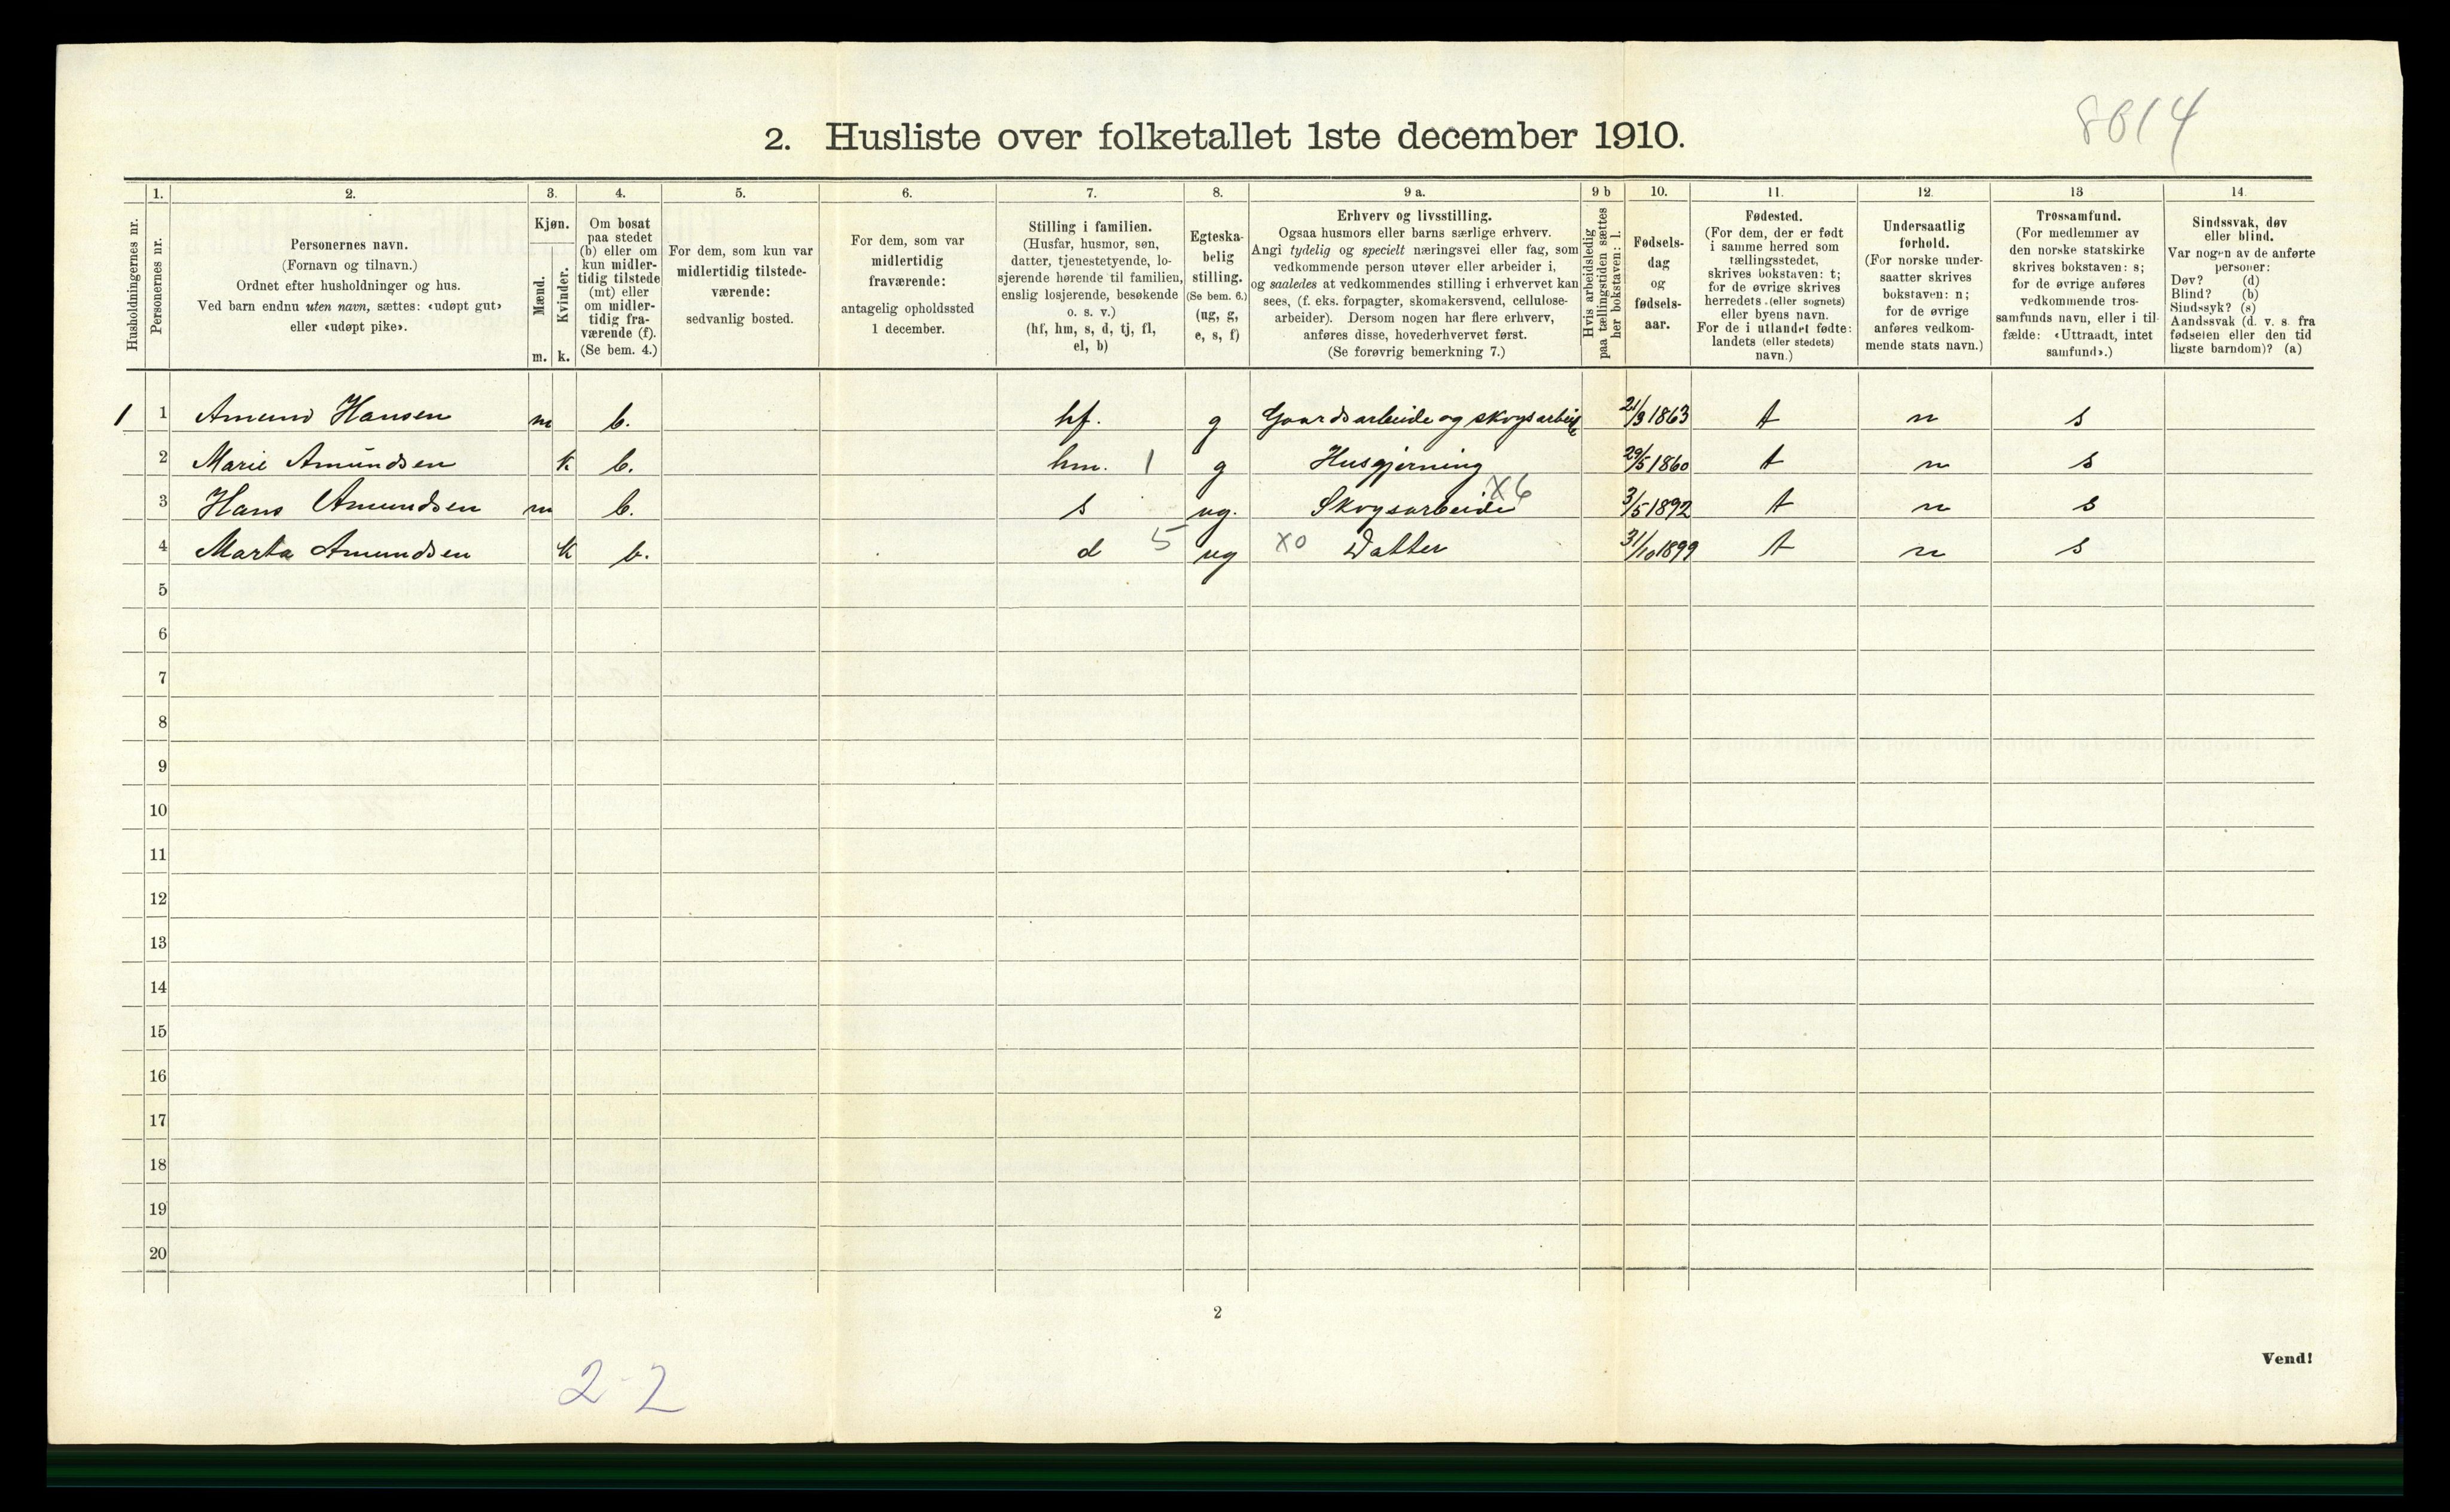 8614
2. Husliste over folketallet 1ste december 1910.
Husholdningernes nr.
1.
Personernes nr.
2.
Personernes navn.
(Fornavn og tilnavn.)
Ordnet efter husholdninger og hus.
Ved barn endnu uten navn, sættes: «udøpt gut»
eller «udøpt pike».
3.
Kjøn.
Mænd.
Kvinder.
m. k.
4.
Om bosat
paa stedet
(b) eller om
kun midler-
tidig tilstede
(mt) eller
om midler-
tidig fra-
værende (f).
(Se bem. 4.)
5.
For dem, som kun var
midlertidig tilstede-
værende:
sedvanlig bosted.
6.
For dem, som var
midlertidig
fraværende:
antagelig opholdssted
1 december.
7.
Stilling i familien.
(Husfar, husmor, søn,
datter, tjenestetyende, lo-
sjerende hørende til familien,
enslig losjerende, besøkende
o. s. v.)
(hf, hm, s, d, tj, fl,
el, b)
8.
Egteska-
belig
stilling.
(Se bem. 6.)
(ug, g,
e, s, f)
9 a.
Erhverv og livsstilling.
Ogsaa husmors eller barns særlige erhverv.
Angi tydelig og specielt næringsvei eller fag, som
vedkommende person utøver eller arbeider i,
og saaledes at vedkommendes stilling i erhvervet kan
sees, (f. eks. forpagter, skomakersvend, cellulose-
arbeider). Dersom nogen har flere erhverv,
anføres disse, hovederhvervet først.
(Se forøvrig bemerkning 7.)
9 b
Hvis arbeidsledig
paa tællingstiden sættes
her bokstaven: l.
10.
Fødsels-
dag
og
fødsels-
aar.
11.
Fødested.
(For dem, der er født
i samme herred som
tællingsstedet,
skrives bokstaven: t;
for de øvrige skrives
herredets (eller sognets)
eller byens navn.
For de i utlandet fødte:
landets (eller stedets)
navn.)
12.
Undersaatlig
forhold.
(For norske under-
saatter skrives
bokstaven: n;
for de øvrige
anføres vedkom-
mende stats navn.)
13
Trossamfund.
(For medlemmer av
den norske statskirke
skrives bokstaven: s;
for de øvrige anføres
vedkommende tros-
samfunds navn, eller i til-
fælde: «Uttraadt, intet
samfund».)
14.
Sindssvak, døv
eller blind.
Var nogen av de anførte
personer:
Døv? (d)
Blind? (b)
Sindssyk? (s)
Aandssvak (d. v. s. fra
fødselen eller den tid
ligste barndom)? (a)
1 1 Amund Hansen m b. hf. g Gaardsarbeide og skogsarbeide 21/3 1863 t n s
2 Marie Amundsen k b. hm. 1 g Husgjerning 29/5 1860 t n s
3 Hans Amundsen m b. s ug. Skogsarbeide X6 3/5 1892 t n s
4 Marta Amundsen k b. d 5 ug X0 Datter 31/10 1899 t n s
5
6
7
8
9
10
11
12
13
14
15
16
17
18
19
20
2
Vend!
2-2